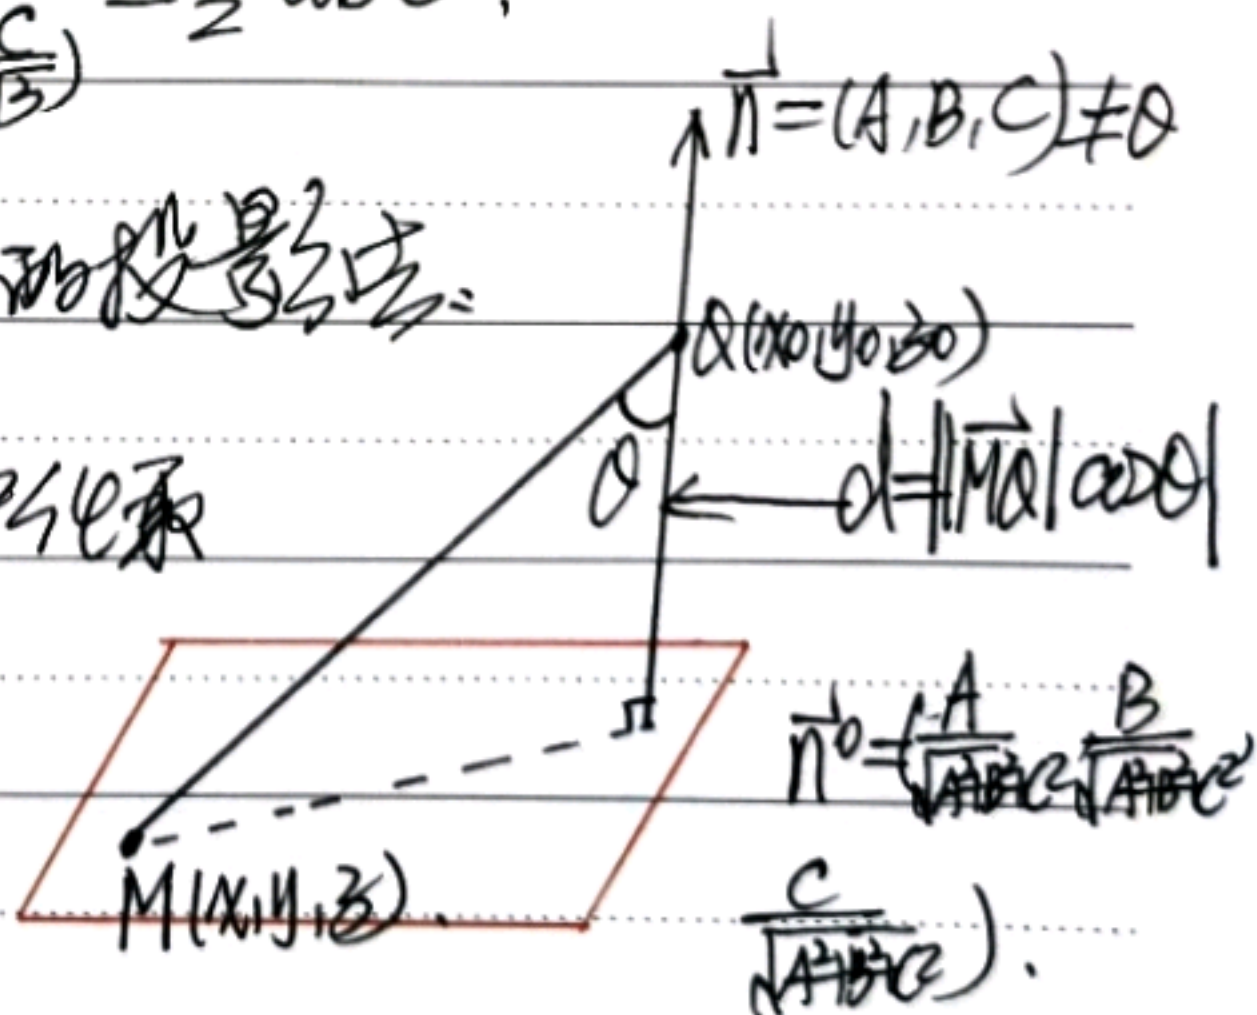 C/3)
n⃗=(A,B,C)≠0
的投影法:
Q(x₀,y₀,z₀)
θ
d=||MQ⃗|cosθ|
M(x,y,z).
n⃗⁰=(A/√(A²+B²+C²), B/√(A²+B²+C²),
C/√(A²+B²+C²)).